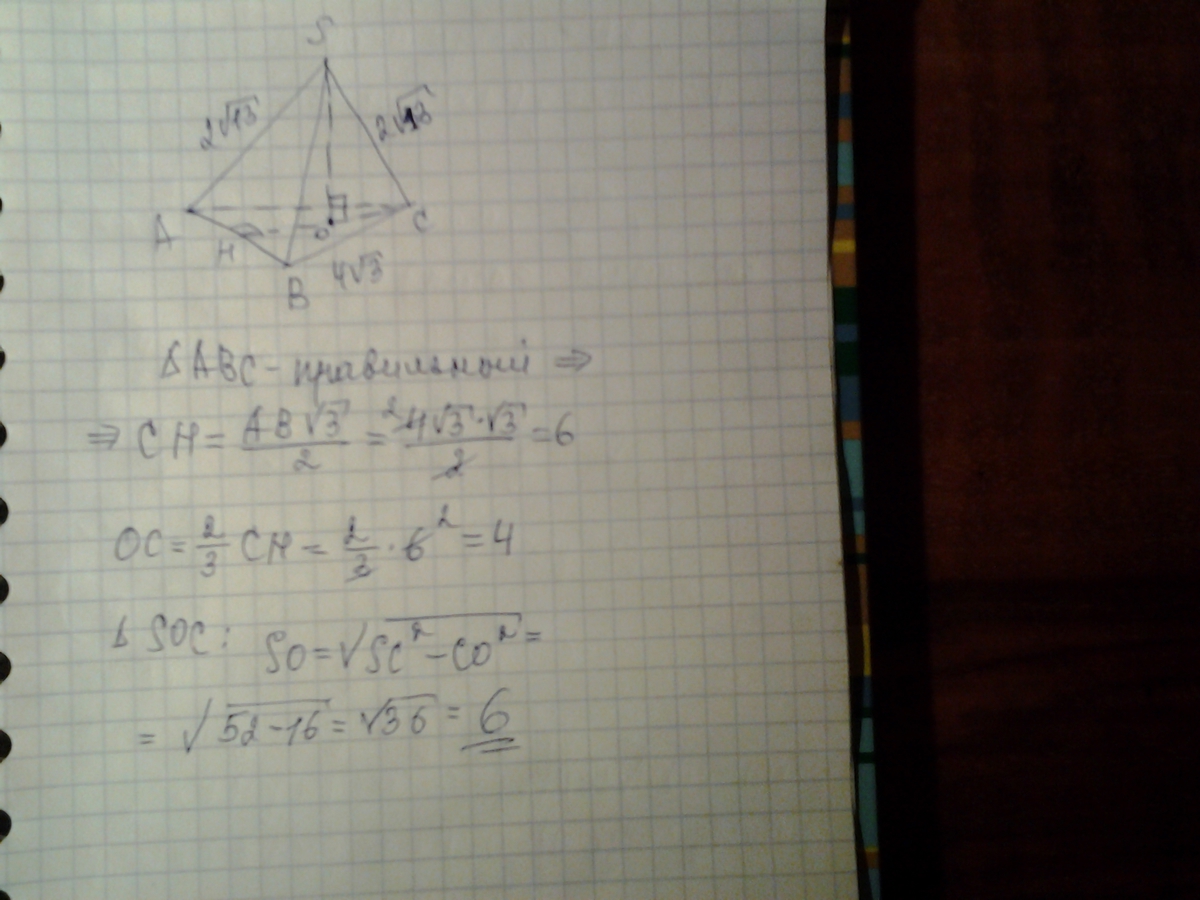 S
2√13 2√13
A H O C
B 4√3
Δ ABC - правильный ⇒
⇒ CH = AB√3/2 = ²4√3·√3/2 = 6
OC = 2/3 CH = 2/3 · 6² = 4
Δ SOC: SO = √SC² - CO² =
= √52-16 = √36 = 6